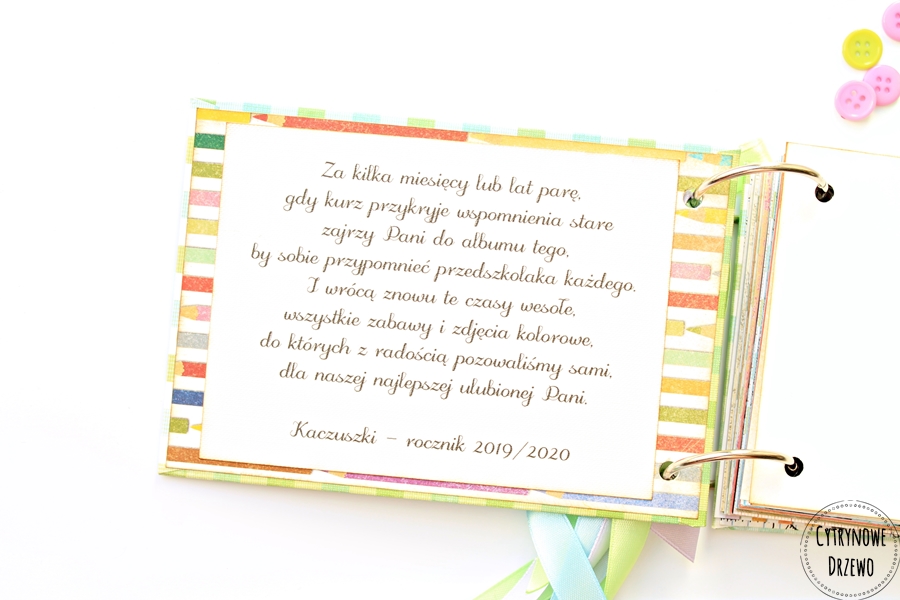 Za kilka miesięcy lub lat parę,
gdy kurz przykryje wspomnienia stare
zajrzy Pani do albumu tego,
by sobie przypomnieć przedszkolaka każdego.
I wrócą znowu te czasy wesołe,
wszystkie zabawy i zdjęcia kolorowe,
do których z radością pozowaliśmy sami,
dla naszej najlepszej ulubionej Pani.
Kaczuszki – rocznik 2019/2020
CYTRYNOWE
DRZEWO